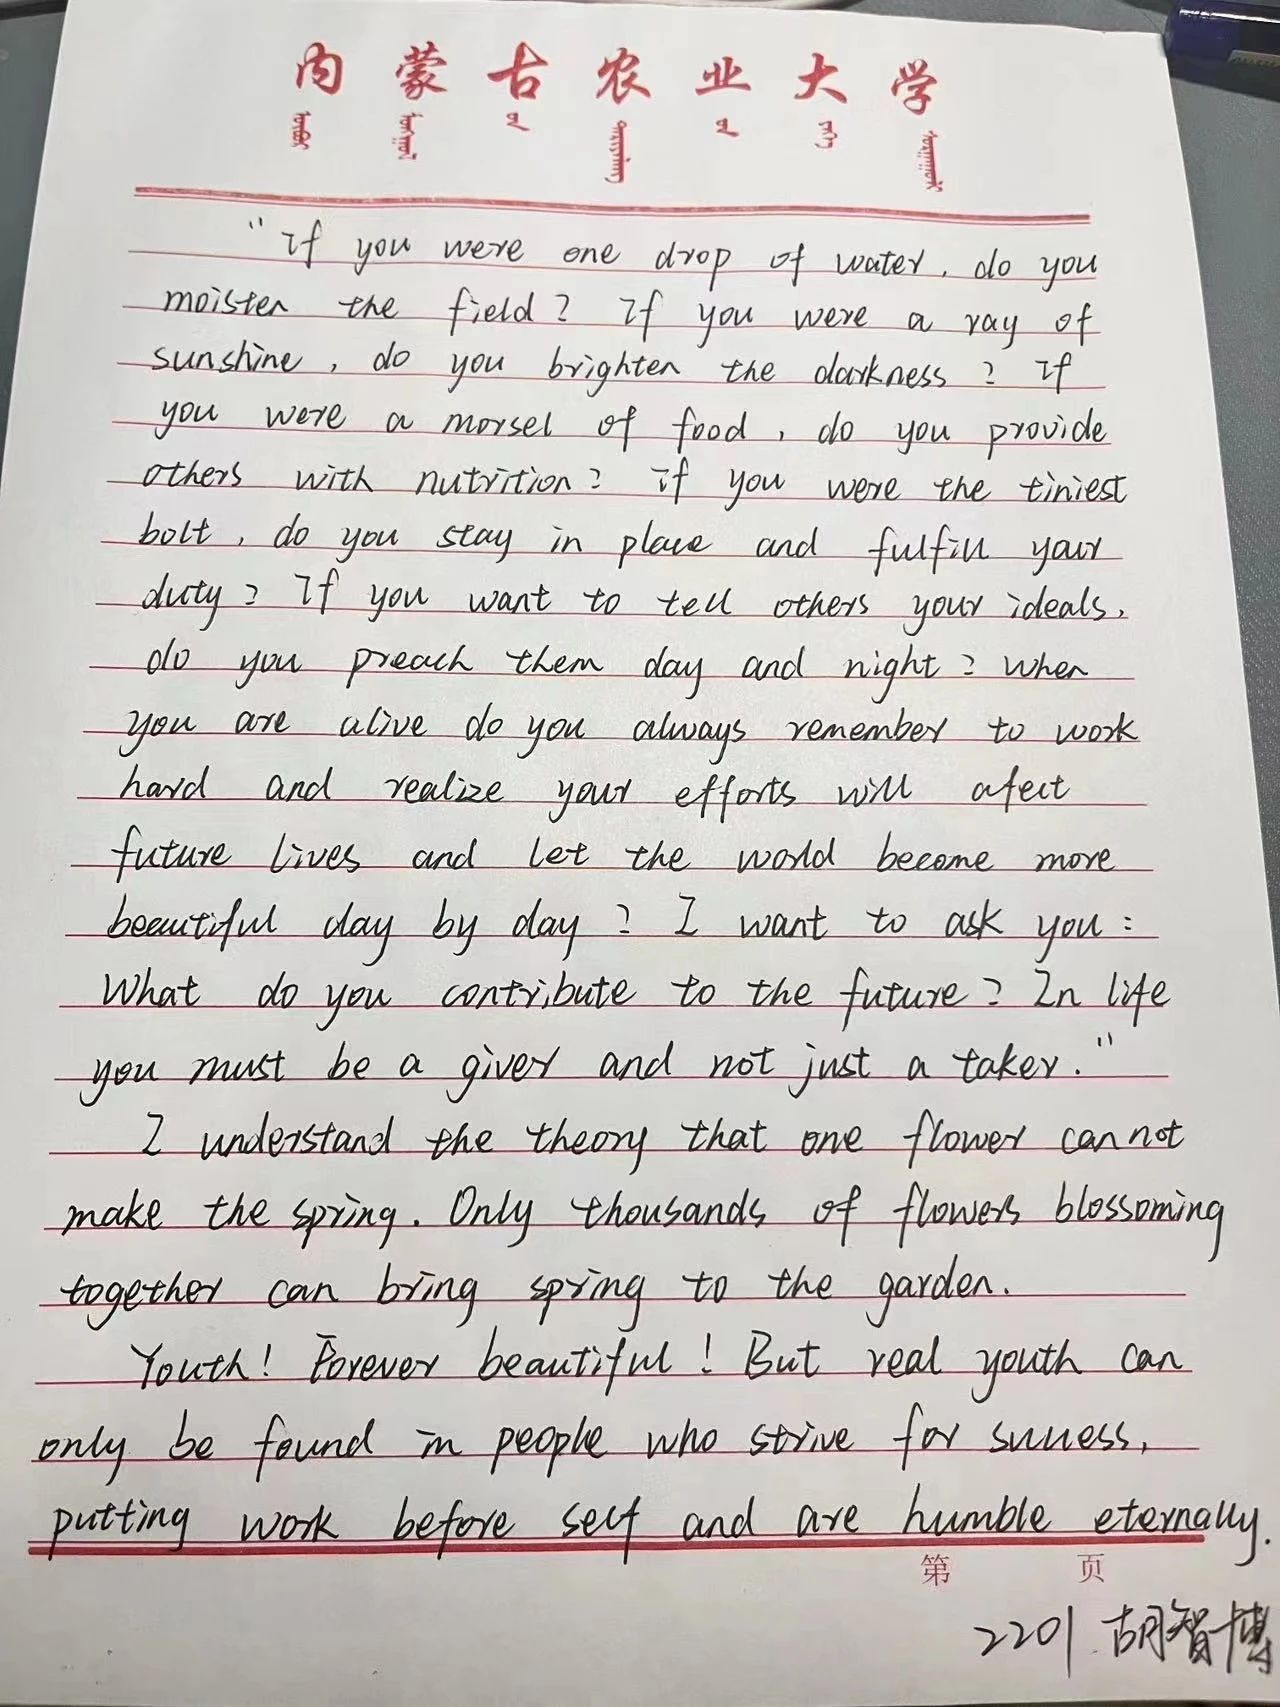 内蒙古农业大学
"If you were one drop of water, do you
moisten the field? If you were a ray of
sunshine, do you brighten the darkness? If
you were a morsel of food, do you provide
others with nutrition? If you were the tiniest
bolt, do you stay in place and fulfill your
duty? If you want to tell others your ideals,
do you preach them day and night? When
you are alive do you always remember to work
hard and realize your efforts will afect
future lives and let the world become more
beautiful day by day? I want to ask you:
What do you contribute to the future? In life
you must be a giver and not just a taker."
I understand the theory that one flower cannot
make the spring. Only thousands of flowers blossoming
together can bring spring to the garden.
Youth! Forever beautiful! But real youth can
only be found in people who strive for success,
putting work before self and are humble eternally.
第 页
2201 胡智博